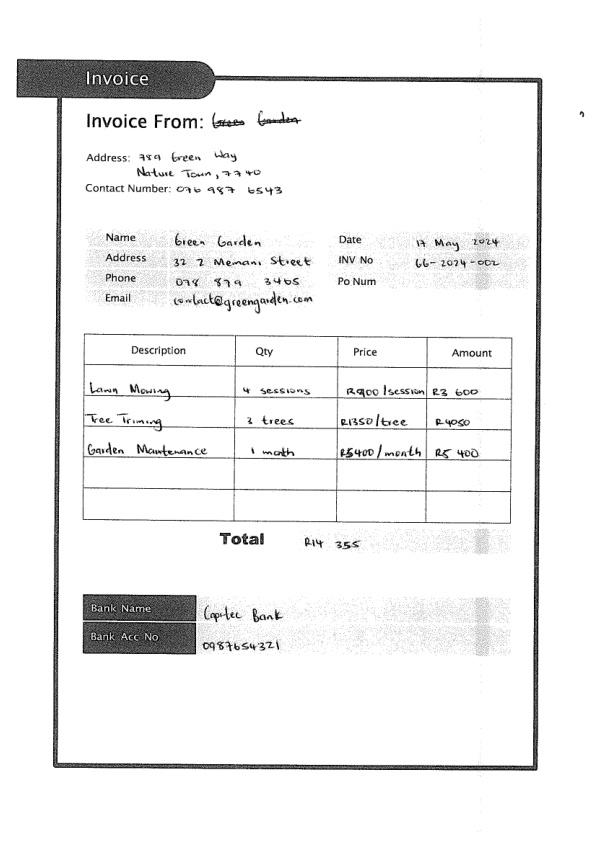 Invoice
Invoice From: Green Garden
Address: 789 Green Way
Nature Town, 7740
Contact Number: 076 987 6543
Name Green Garden Date 17 May 2024
Address 32 2 Memani Street INV No 66-2024-002
Phone 078 879 3465 Po Num
Email contact@greengarden.com
Description Qty Price Amount
Lawn Mowing 4 sessions R900/session R3 600
Tree Triming 3 trees R1350/tree R4050
Garden Maintenance 1 month R5400/month R5 400
Total R14 355
Bank Name Capitec Bank
Bank Acc No 0987654321